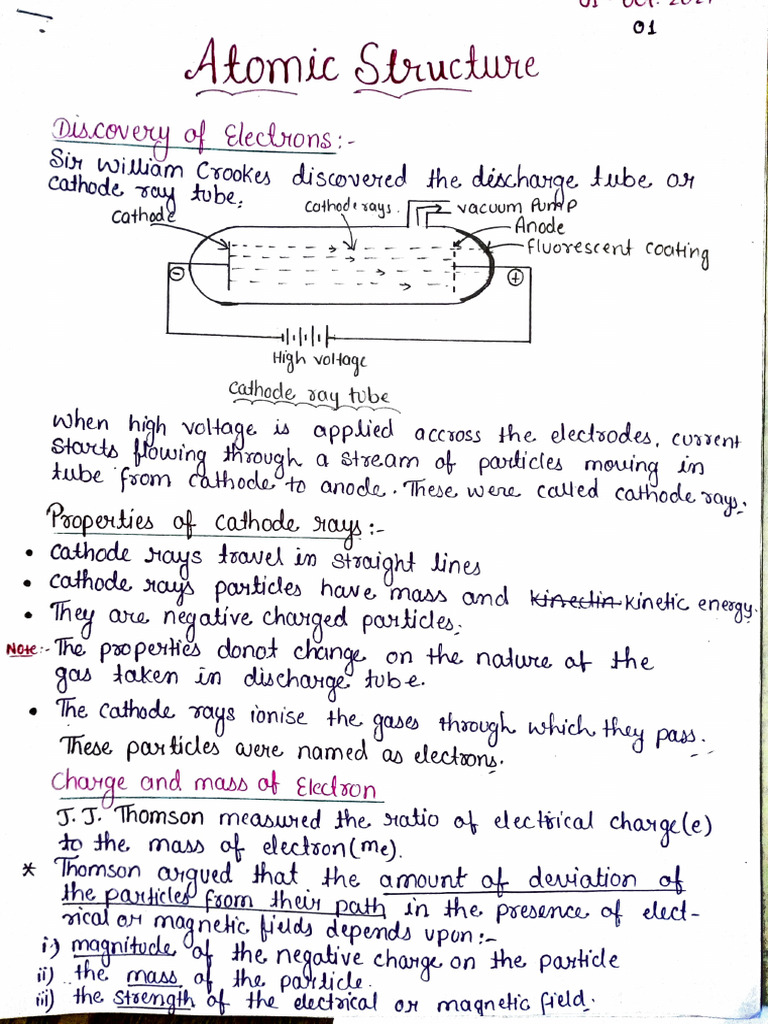 01
Atomic Structure
Discovery of Electrons:-
Sir William Crookes discovered the discharge tube or
cathode ray tube.
cathode
cathode rays.
vacuum pump
Anode
fluorescent coating
-
+
High voltage
cathode ray tube
when high voltage is applied accross the electrodes, current
starts flowing through a stream of particles moving in
tube from cathode to anode. These were called cathode rays.
Properties of cathode rays:-
• cathode rays travel in straight lines
• cathode rays particles have mass and kinectin kinetic energy.
• They are negative charged particles.
Note:- The properties donot change on the nature of the
gas taken in discharge tube.
• The cathode rays ionise the gases through which they pass.
These particles were named as electrons.
Charge and mass of Electron
J.J. Thomson measured the ratio of electrical charge(e)
to the mass of electron(me).
* Thomson argued that the amount of deviation of
the particles from their path in the presence of elect-
rical or magnetic fields depends upon:-
i) magnitude of the negative charge on the particle
ii) the mass of the particle.
iii) the strength of the electrical or magnetic field.